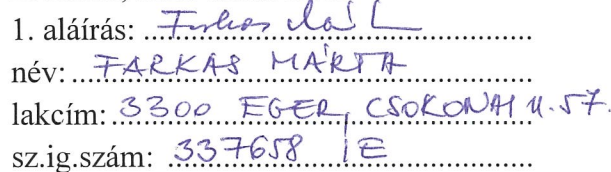 1. aláírás: Farkas
név: FARKAS MÁRTA
lakcím: 3300 EGER, CSOKONAI u. 57.
sz.ig.szám: 337658 IE